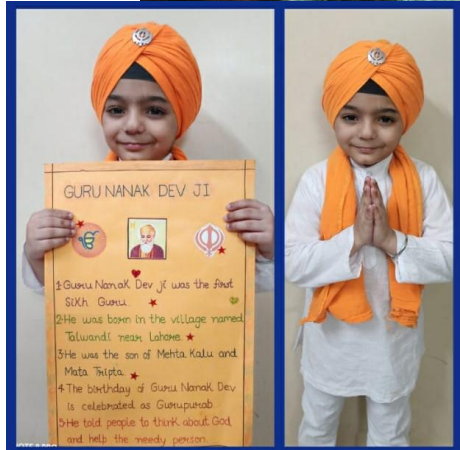 GURU NANAK DEV JI
1·Guru Nanak Dev ji was the first
Sikh Guru.
2·He was born in the village named
Talwandi near Lahore.
3·He was the son of Mehta Kalu and
Mata Tripta.
4·The birthday of Guru Nanak Dev
is celebrated as Gurupurab.
5·He told people to think about God
and help the needy person.